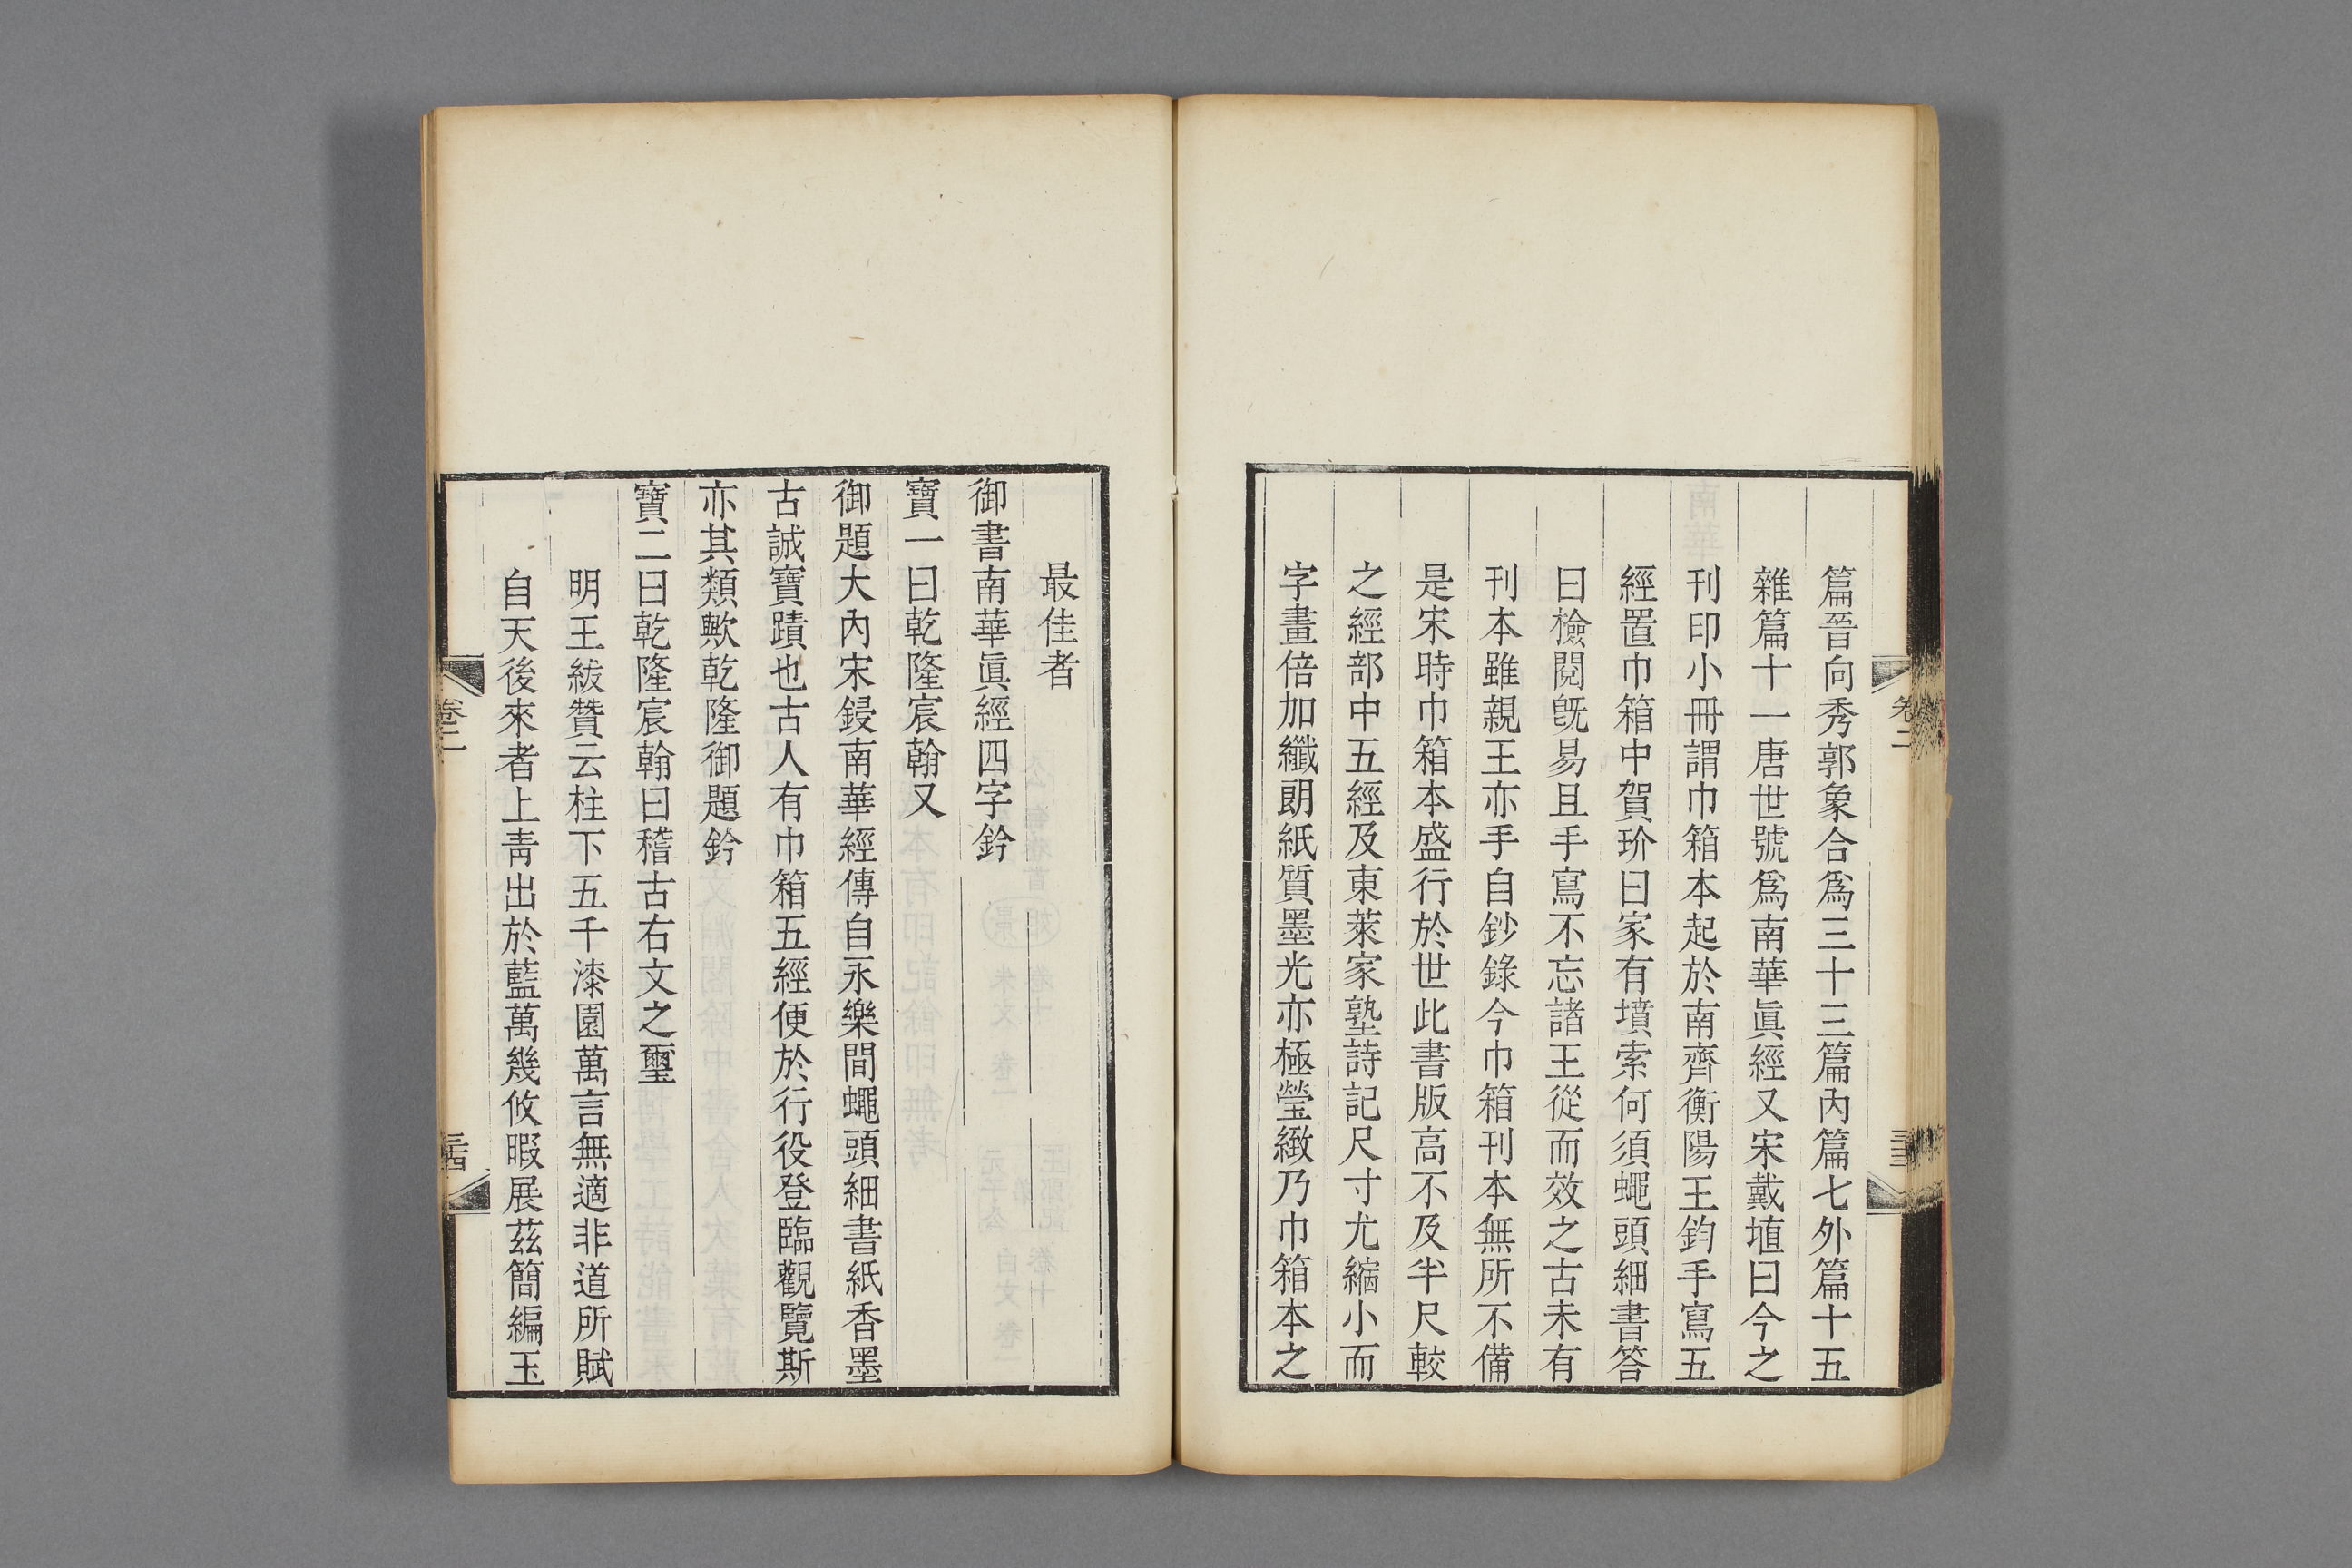 篇晉向秀郭象合爲三十三篇內篇七外篇十五
雜篇十一唐世號爲南華眞經又宋戴埴曰今之
刊印小冊謂巾箱本起於南齊衡陽王鈞手寫五
經置巾箱中賀玠曰家有墳索何須蠅頭細書答
曰檢閱旣易且手寫不忘諸王從而效之古未有
刊本雖親王亦手自鈔錄今巾箱刊本無所不備
是宋時巾箱本盛行於世此書版高不及半尺較
之經部中五經及東萊家塾詩記尺寸尤縮小而
字畫倍加纖朗紙質墨光亦極瑩緻乃巾箱本之
卷二
三十三
最佳者
御書南華眞經四字鈐
寶一曰乾隆宸翰又
御題大內宋鋟南華經傳自永樂間蠅頭細書紙香墨
古誠寶蹟也古人有巾箱五經便於行役登臨觀覽斯
亦其類歟乾隆御題鈐
寶二曰乾隆宸翰曰稽古右文之璽
明王紱贊云柱下五千漆園萬言無適非道所賦
自天後來者上靑出於藍萬幾攸暇展茲簡編玉
卷二
三十四